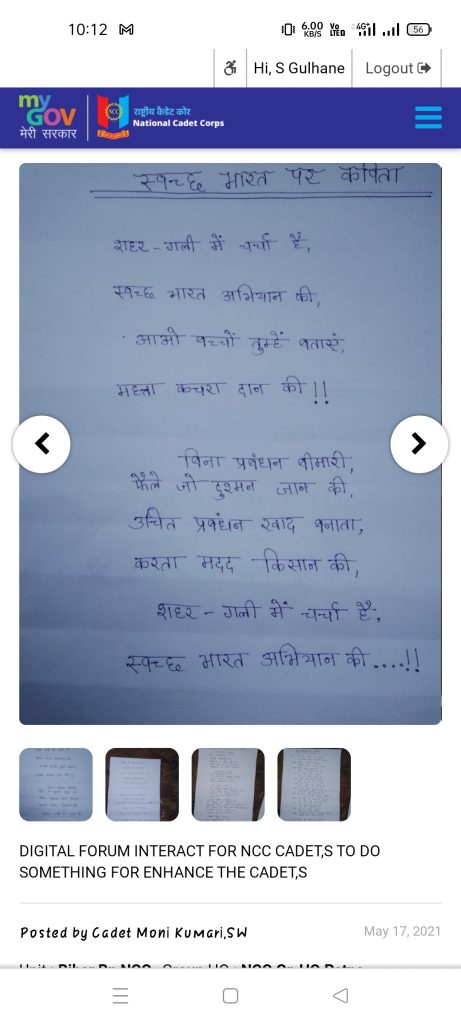 10:12
6.00 KB/S Vo LTED 4G+ 56
Hi, S Gulhane
Logout
my
GOV
मेरी सरकार
NCC
राष्ट्रीय कैडेट कोर
National Cadet Corps
स्वच्छ भारत पर कविता
शहर - गली में चर्चा है,
स्वच्छ भारत अभियान की,
आओ बच्चों तुम्हें बताएं,
महत्ता कचरा दान की !!
बिना प्रबंधन बीमारी,
फैले जो दुश्मन जान की,
उचित प्रबंधन खाद बनाता,
करता मदद किसान की,
शहर - गली में चर्चा है,
स्वच्छ भारत अभियान की ....!!
DIGITAL FORUM INTERACT FOR NCC CADET,S TO DO
SOMETHING FOR ENHANCE THE CADET,S
Posted by Cadet Moni Kumari,SW
May 17, 2021